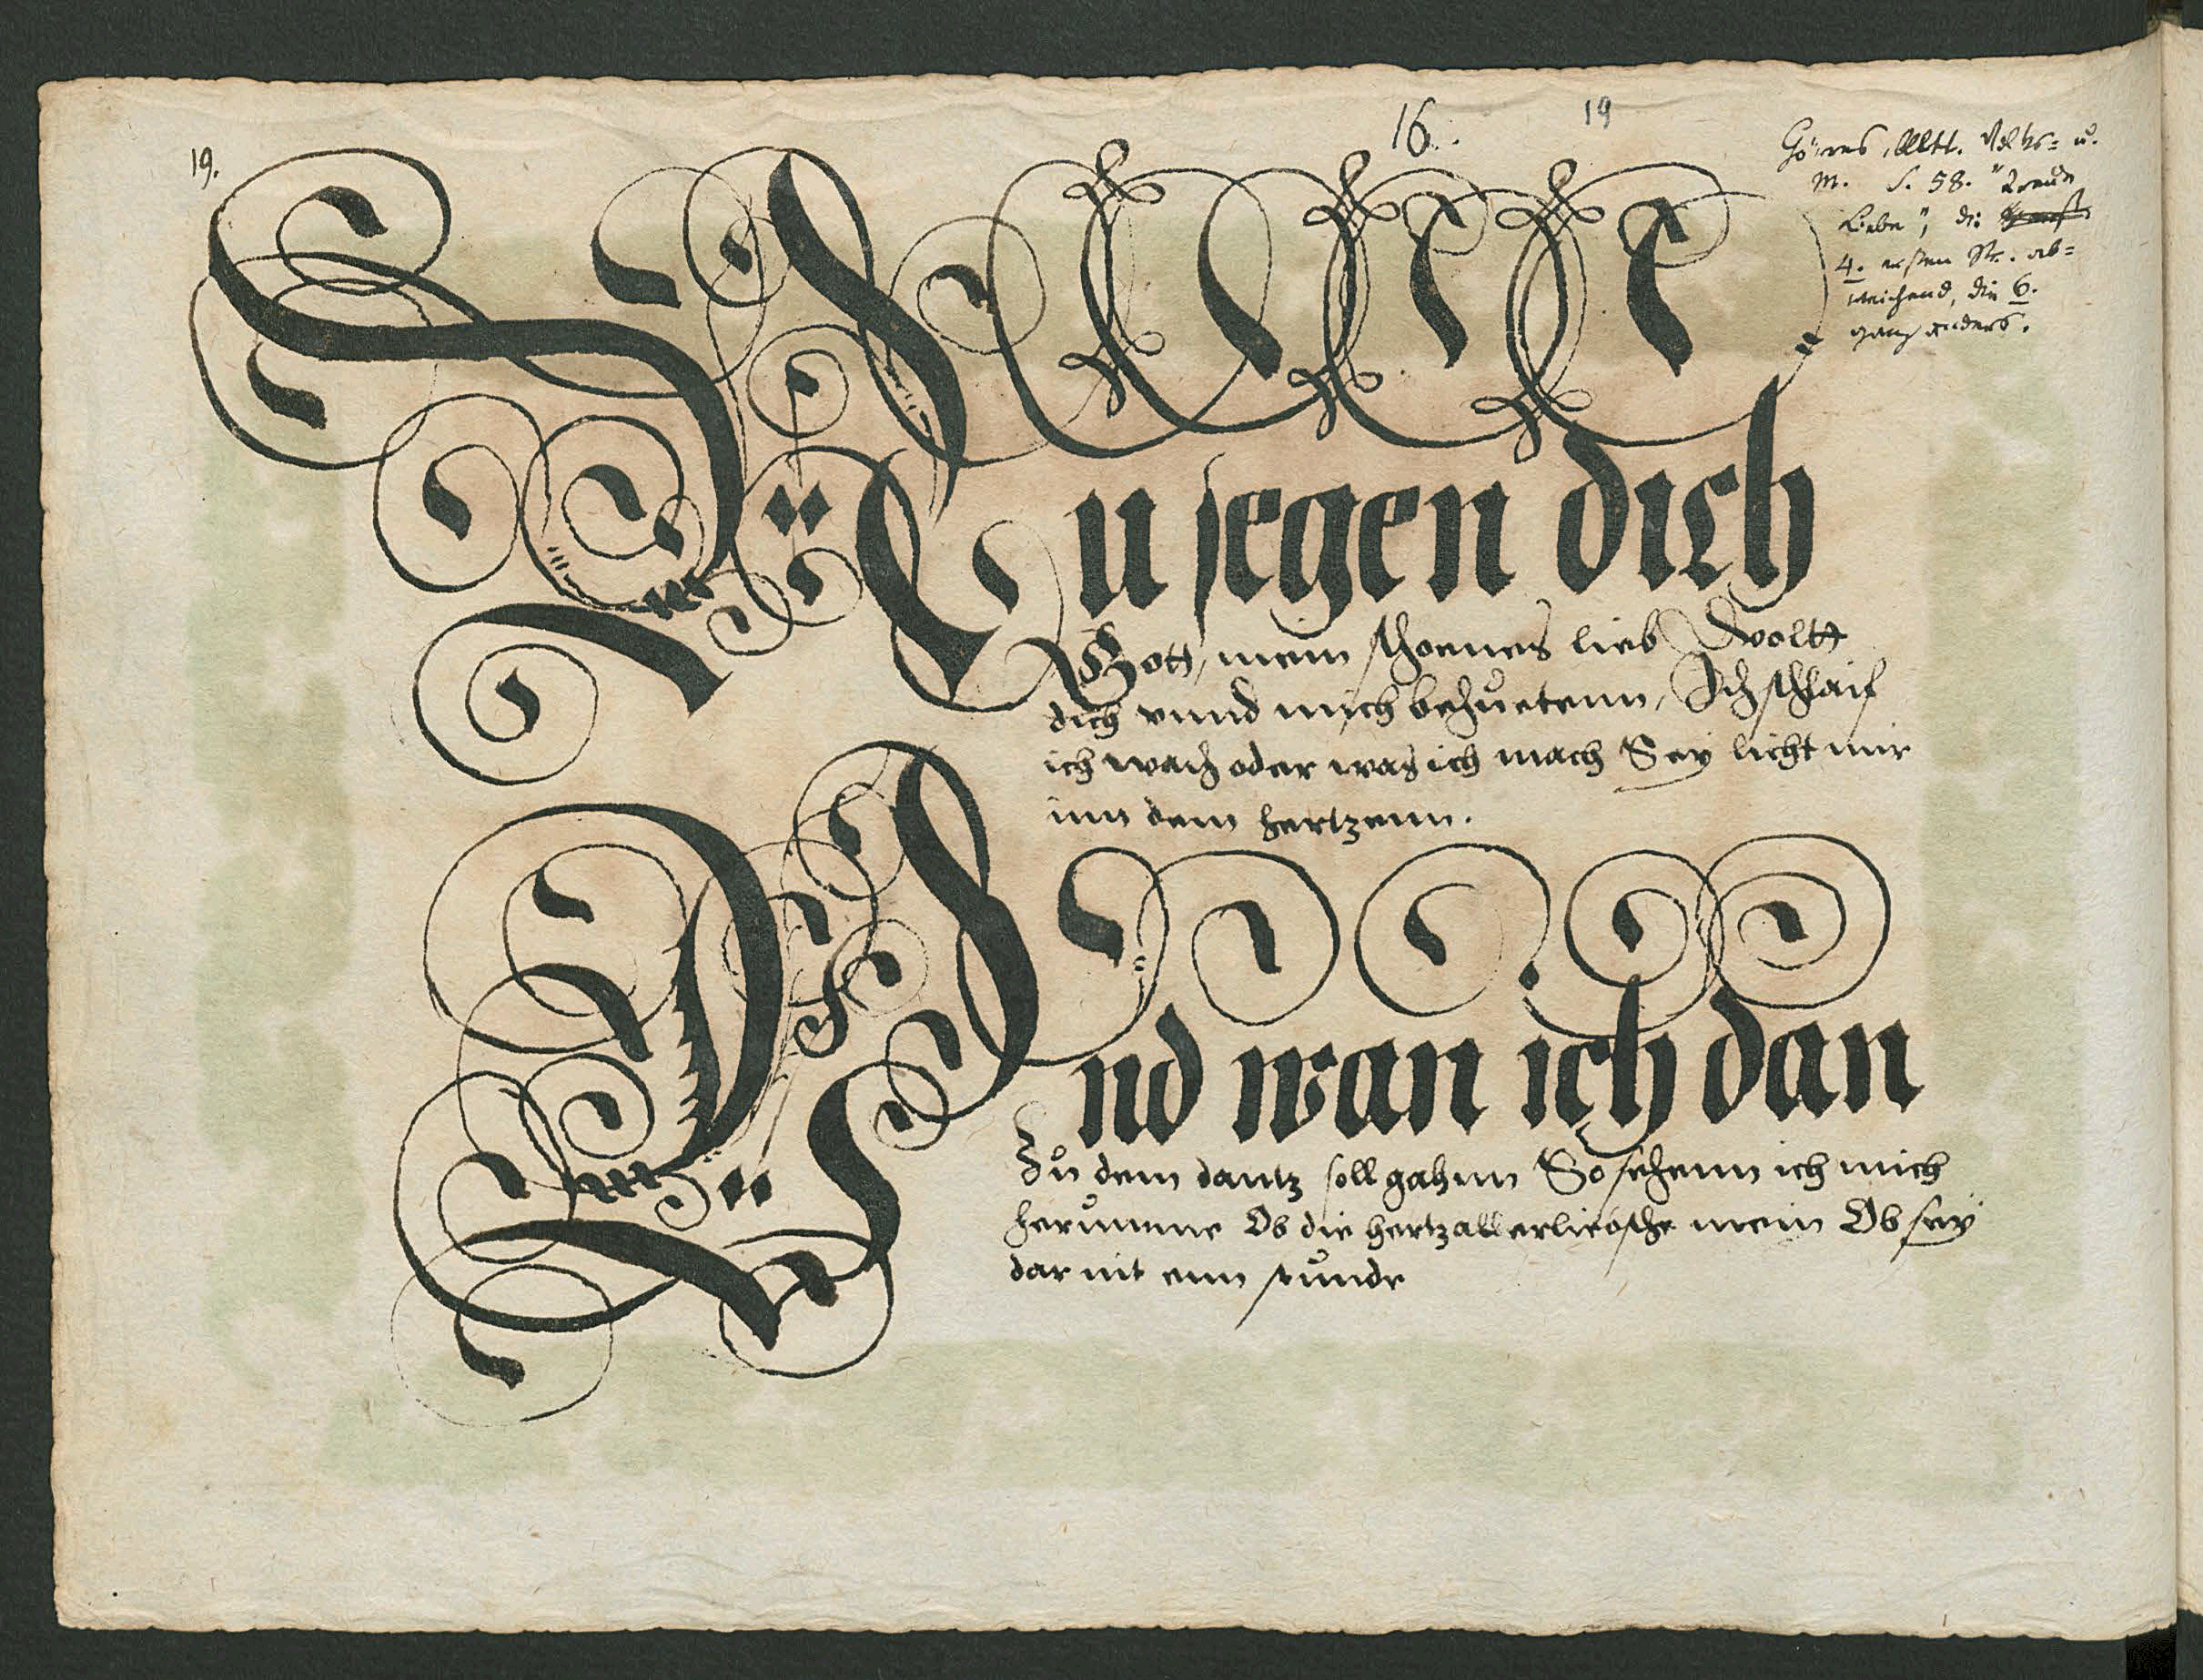 19.
16.
19
Görres, Altt. Volks= u.
M. S. 58. "Treue
Liebe", die
4. ersten Str. ab=
weichend, die 6.
ganz anders.
Nu segen dich
Gott, mein schoenes lieb Woltt
dich vnnd mich behuetenn, Ich schlaif
ich wach oder was ich mach Sey licht mir
inn dem hertzenn.
Vnd wan ich dan
Zu dem dantz soll gahnn So sehenn ich mich
herumme Ob die hertzallerliebsthe mein Ob sey
dar nit enn stunde